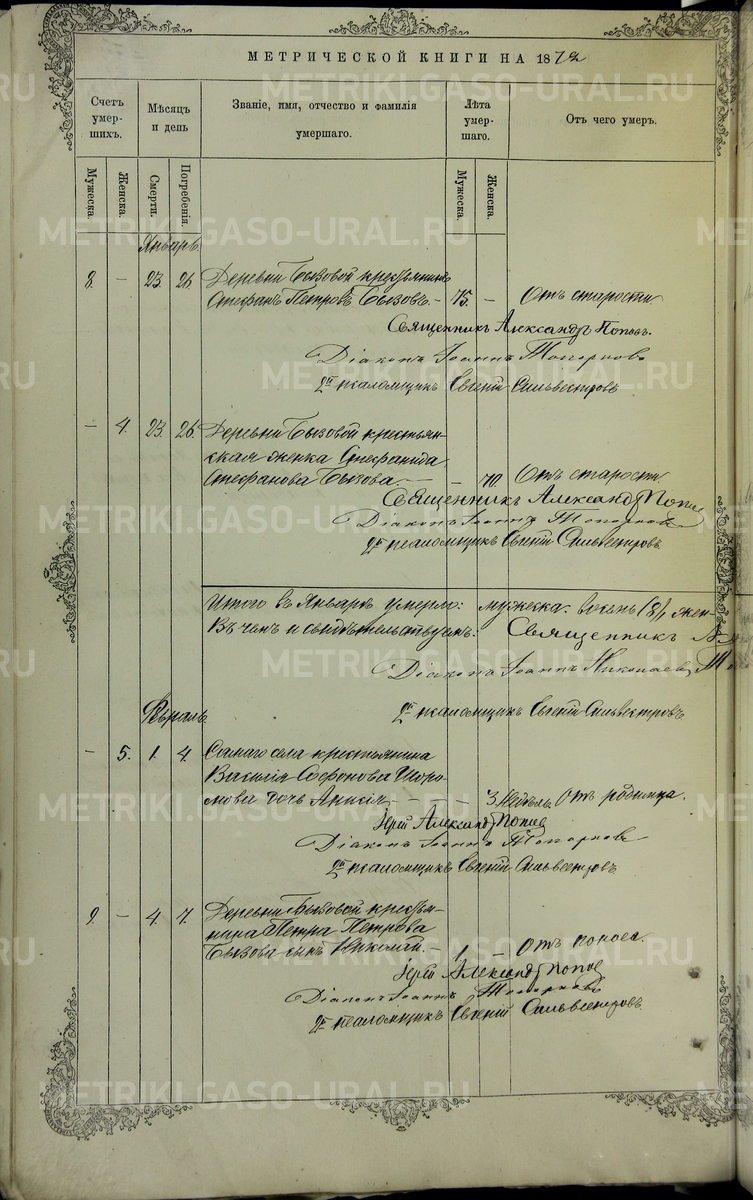 МЕТРИЧЕСКОЙ КНИГИ НА 1872
Счетъ умер-шихъ.
Мѣсяцъ и день
Званіе, имя, отчество и фамилія умершаго.
Лѣта умер-шаго.
Отъ чего умеръ.
Мужеска. Женска. Смерти. Погребенія. Мужеска. Женска.
Январь.
8. – 23. 26. Деревни Бызовой крестьянинъ
Стефанъ Петровъ Бызовъ. – 75. – Отъ старости
Священникъ Александръ Поповъ.
Діаконъ Іоаннъ Топорковъ
псаломщикъ Евгеній Сильвестровъ
– 4. 23. 26. Деревни Бызовой крестьян-
ская женка Стефанида
Стефанова Бызова. – – 70. Отъ старости.
Священникъ Александръ Поповъ
Діаконъ Іоаннъ Топорковъ
псаломщикъ Евгеній Сильвестровъ
Итого въ Январѣ умерло: мужеска: восемь (8), жен-
Въ чемъ и свидѣтельствуемъ: Священникъ
Діаконъ Іоаннъ Николаевъ
псаломщикъ Евгеній Сильвестровъ
Февраль
– 5. 1. 4. Самаго села крестьянина
Василія Софонова
дочь – – – 3 недѣль. Отъ родимца.
Іерей Александръ Поповъ
Діаконъ Іоаннъ Топорковъ
псаломщикъ Евгеній Сильвестровъ
9. – 4. 7. Деревни Бызовой крестья-
нина Петра Петрова
Бызова сынъ Николай. – 1 – Отъ поноса.
Іерей Александръ Поповъ
Діаконъ Іоаннъ Топорковъ
псаломщикъ Евгеній Сильвестровъ
METRIKI.GASO-URAL.RU